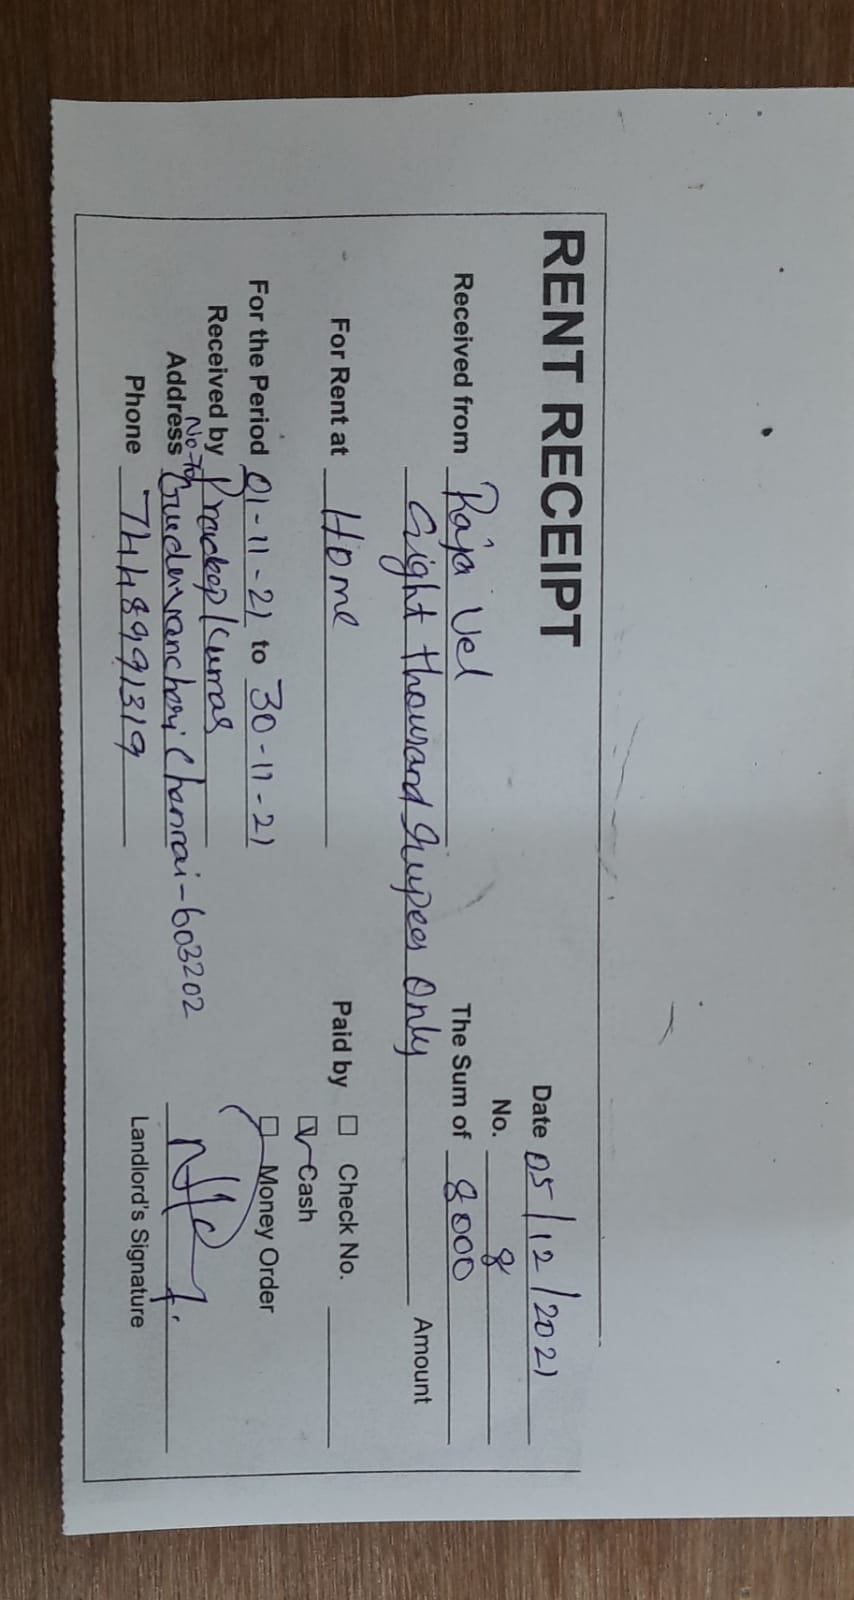 RENT RECEIPT
Date 05/12/2021
No. 8
Received from Raja Vel
The Sum of 8000
Eight thousand Rupees Only Amount
For Rent at Home
Paid by ☐ Check No.
☑ Cash
☐ Money Order
For the Period 01-11-21 to 30-11-21
Received by Pradeep Kumar
Address Guduvancheri Chennai-603202
Phone 7448991319
Landlord's Signature